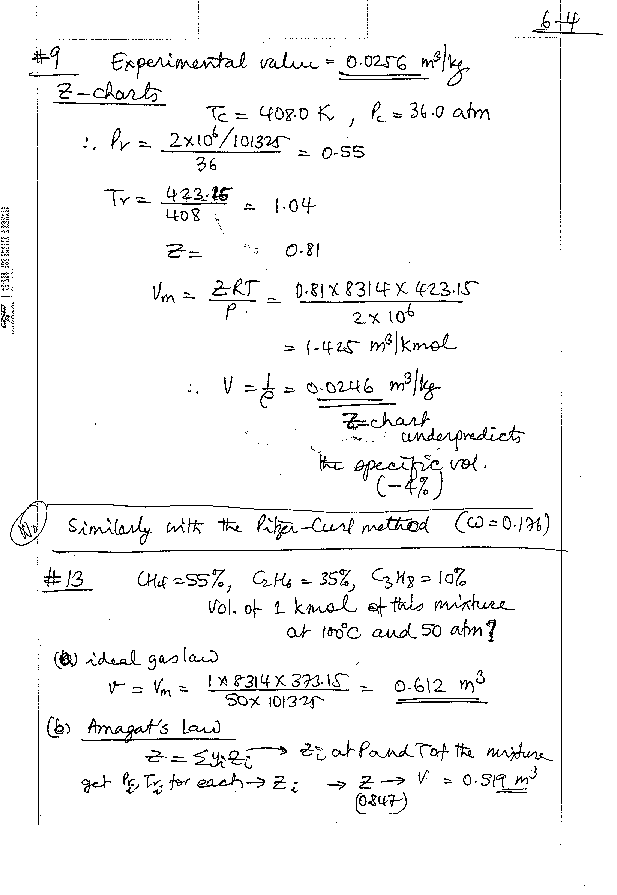 6-4
#9 Experimental value = 0.0256 m³/kg
Z-charts
Tc = 408.0 K , Pc = 36.0 atm
∴ Pr = 2×10⁶/101325 / 36 = 0.55
Tr = 423.15 / 408 = 1.04
Z = 0.81
Vm = ZRT / P = 0.81 × 8314 × 423.15 / 2 × 10⁶
= 1.425 m³/kmol
∴ V = 1/ρ = 0.0246 m³/kg
Z-chart
underpredicts
the specific vol.
(-4%)
Similarly with the Pitzer-Curl method (ω = 0.176)
#13 CH4 = 55%, C2H6 = 35%, C3H8 = 10%
Vol. of 1 kmol of this mixture
at 100°C and 50 atm?
(a) ideal gas law
v = Vm = 1 × 8314 × 373.15 / 50 × 101325 = 0.612 m³
(b) Amagat's Law
Z = Σ yi Zi → Zi at P and T of the mixture
get Pri, Tri for each → Zi → Z → V = 0.519 m³
(0.847)